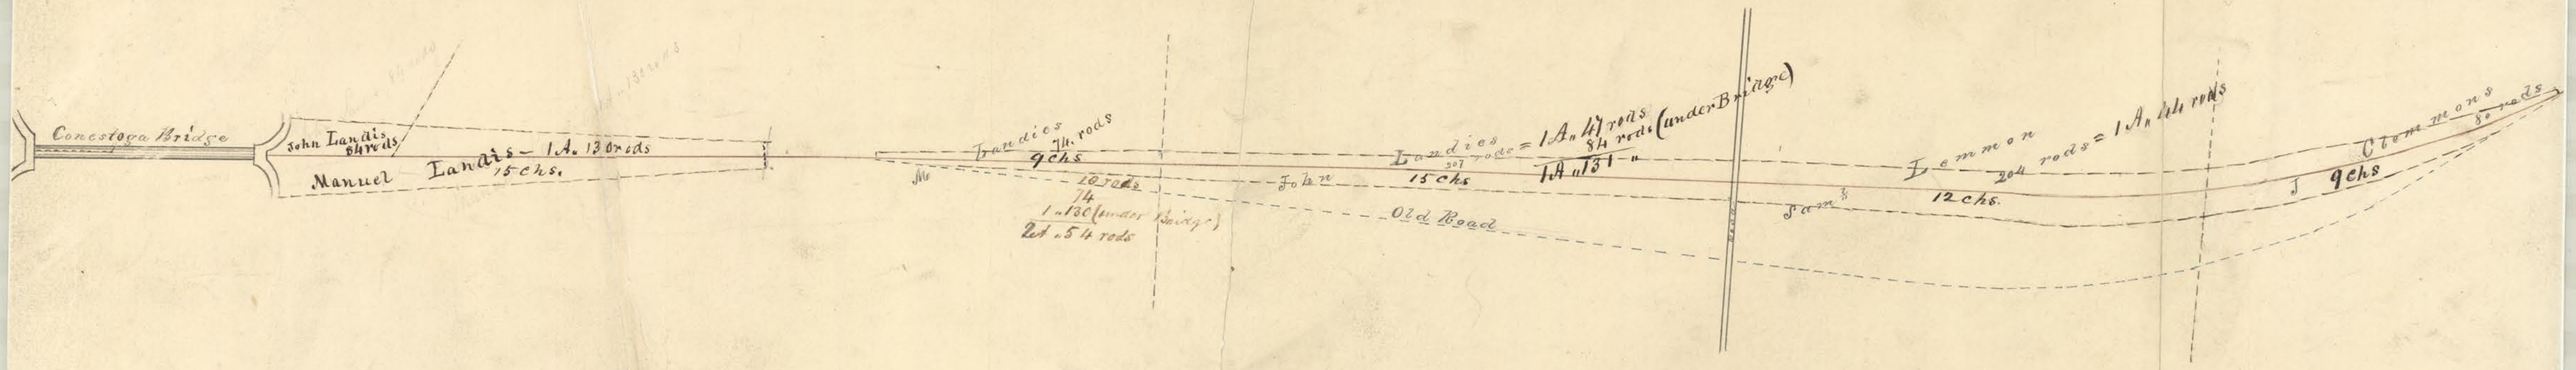 Conestoga Bridge
John Landis
84 rods
Manuel Landis - 1A. 130 rods
15 chs.
M. Landies
74. rods
9 chs
10 rods
74
1 „ 130 (under Bridge)
2A „ 54 rods
John Landies
207 rods = 1A „ 47 rods
84 rods (under Bridge)
1A „ 131 „
15 chs
Old Road
Saml Lemmon
204 rods = 1A „ 44 rods
12 chs.
J Clemmons
80 rods
9 chs